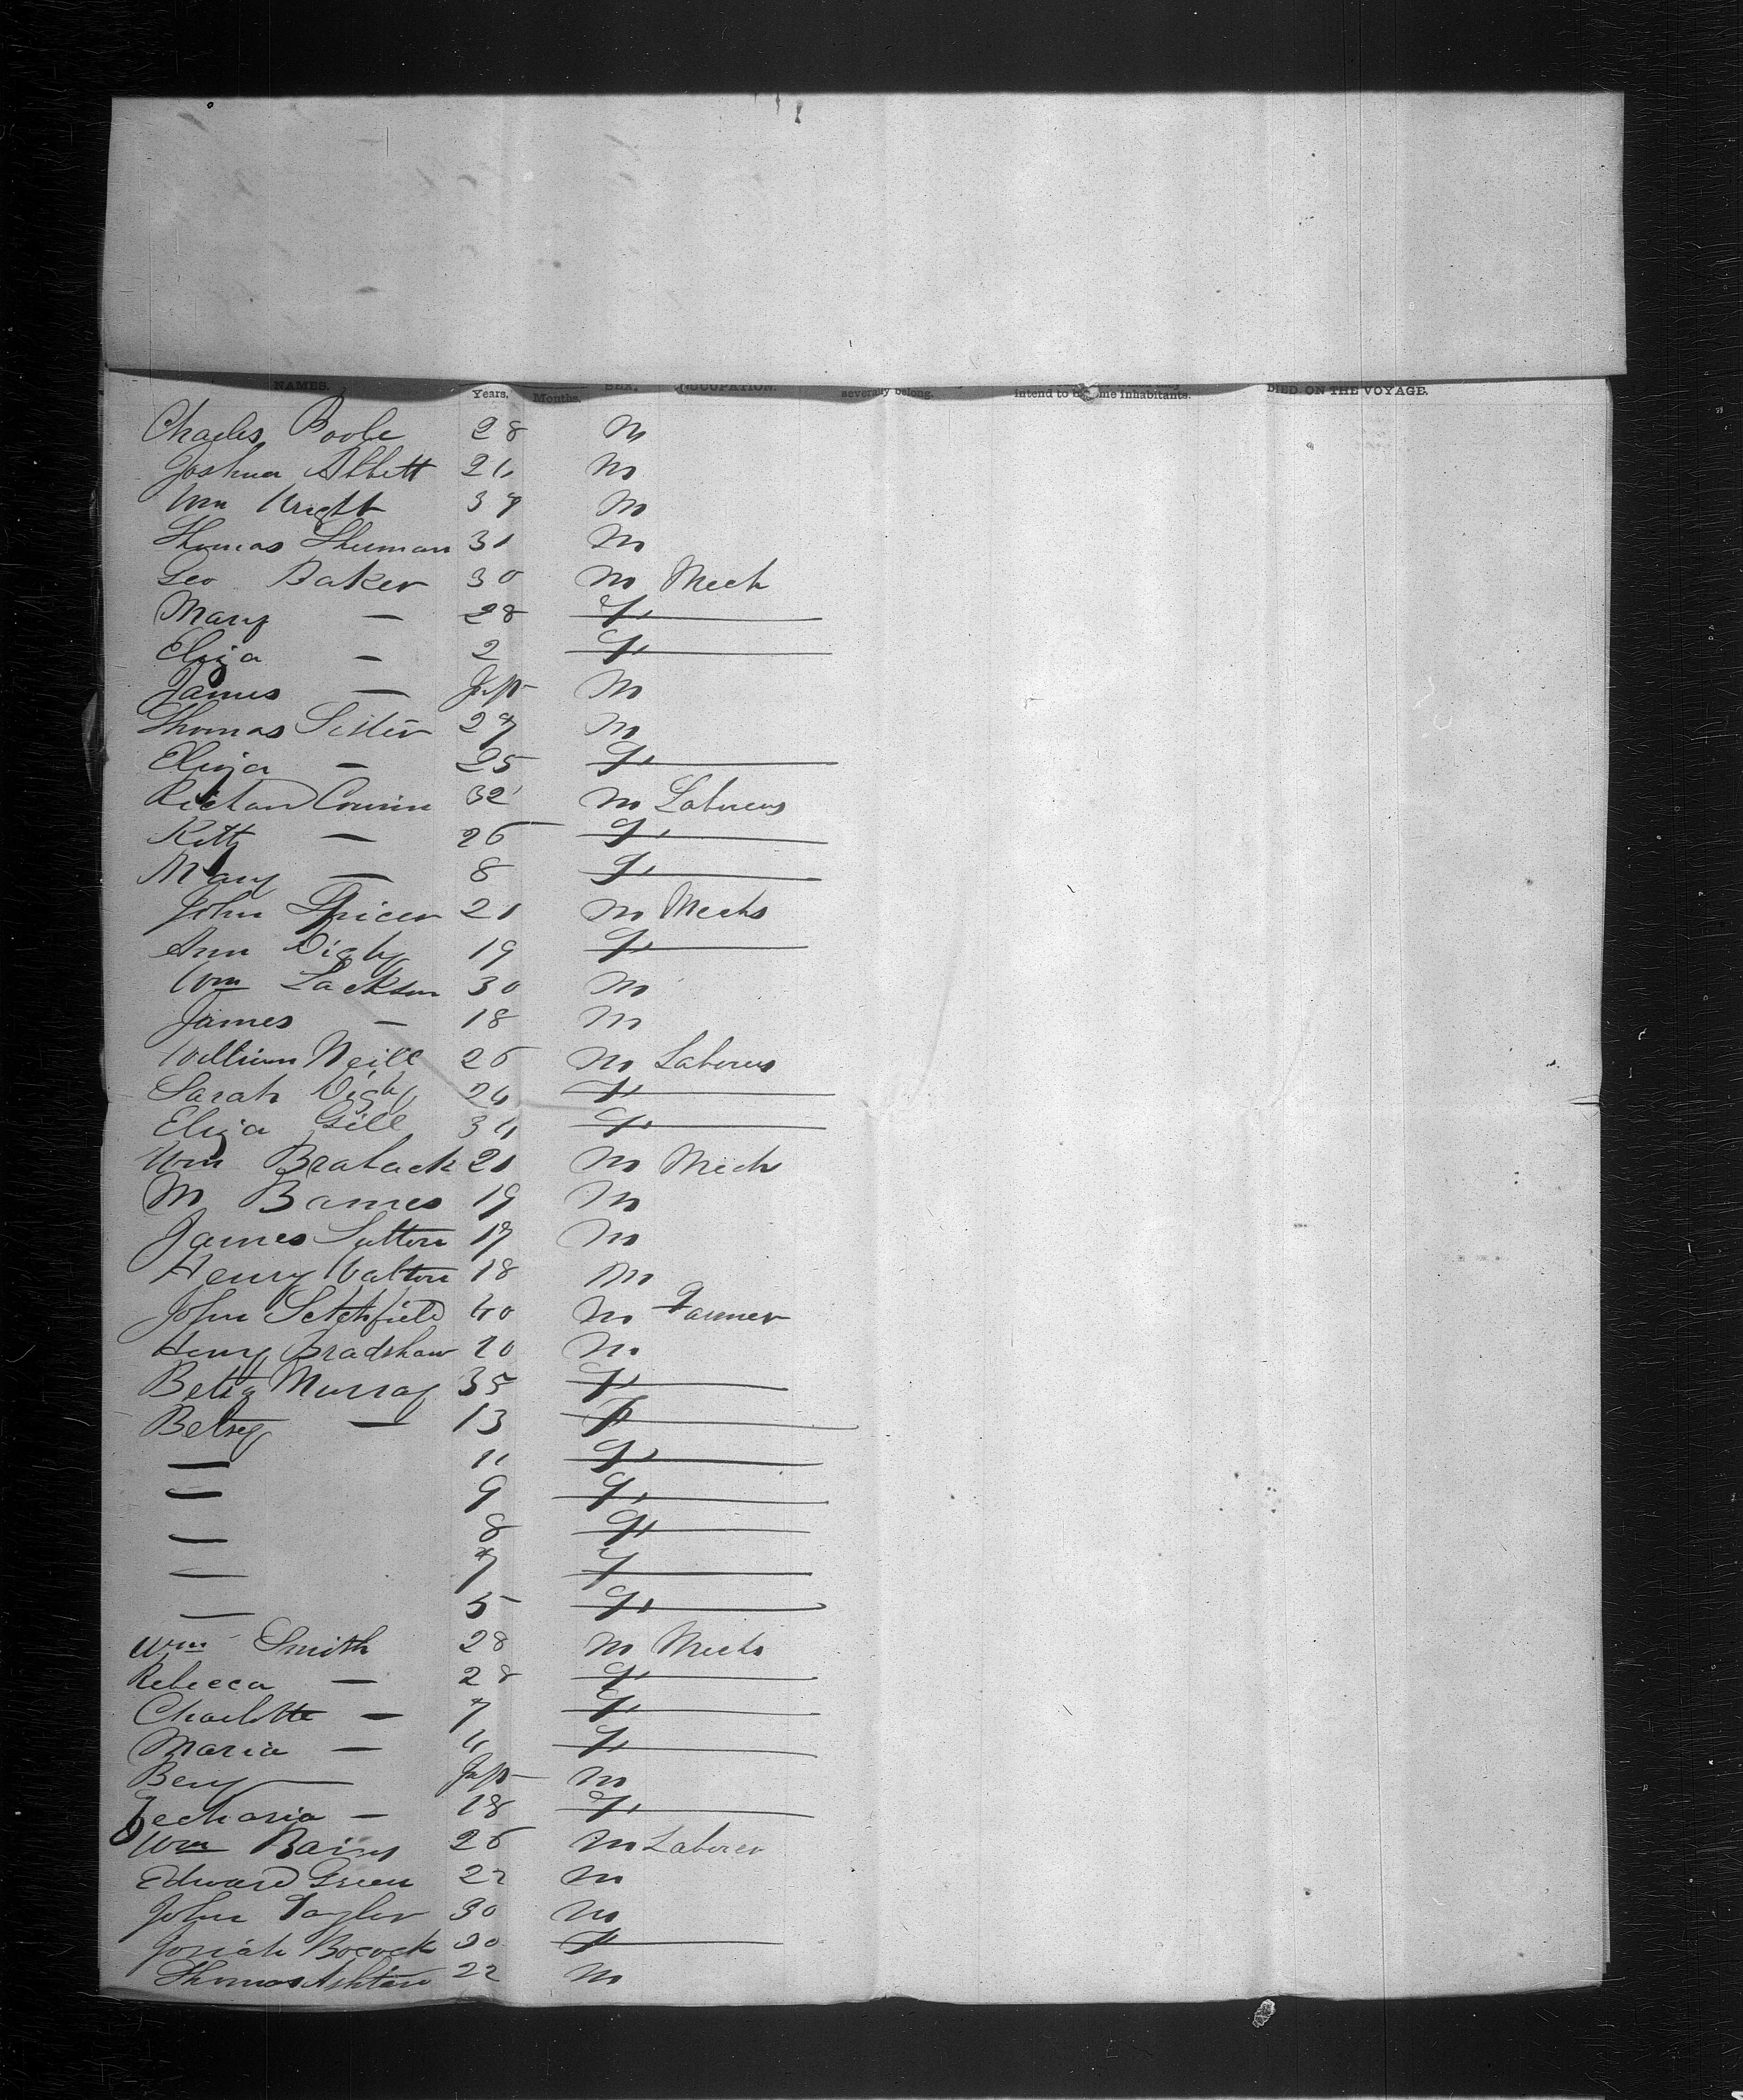 NAMES. Years. Months. SEX. OCCUPATION. severally belong. intend to become inhabitants. DIED ON THE VOYAGE.
Charles Poole 28 M
Joshua Abbett 24 M
Wm Wright 37 M
Thomas Shuman 31 M
Geo Baker 30 M Mech
Mary — 28 F
Eliza — 2 F
James — Inft M
Thomas 27 M
Eliza — 25 F
Richard 32 M Laborers
Kitty — 26 F
Mary — 8 F
John Spicer 21 M Mechs
Ann Digby 19 F
Wm Lackson 30 M
James — 18 M
William Neill 26 M Laborers
Sarah Digby 24 F
Eliza Gill 34 F
Wm Braback 21 M Mech
M Barnes 19 M
James Sutton 17 M
Henry Walton 18 M
John Setchfield 40 M Farmer
Henry Bradshaw 20 M
Murray 35 F
Betsey — 13 F
— 11 F
— 9 F
— 8 F
— 7 F
— 5 F
Wm Smith 28 M Mechs
Rebecca — 28 F
Charlotte — 7 F
Maria — 4 F
Benj — Inft M
Zecharia — 18 F
Wm Bains 26 M Laborer
Edward Green 22 M
John Taylor 30 M
Josiah Bocock 30 F
Thomas Ashton 22 M